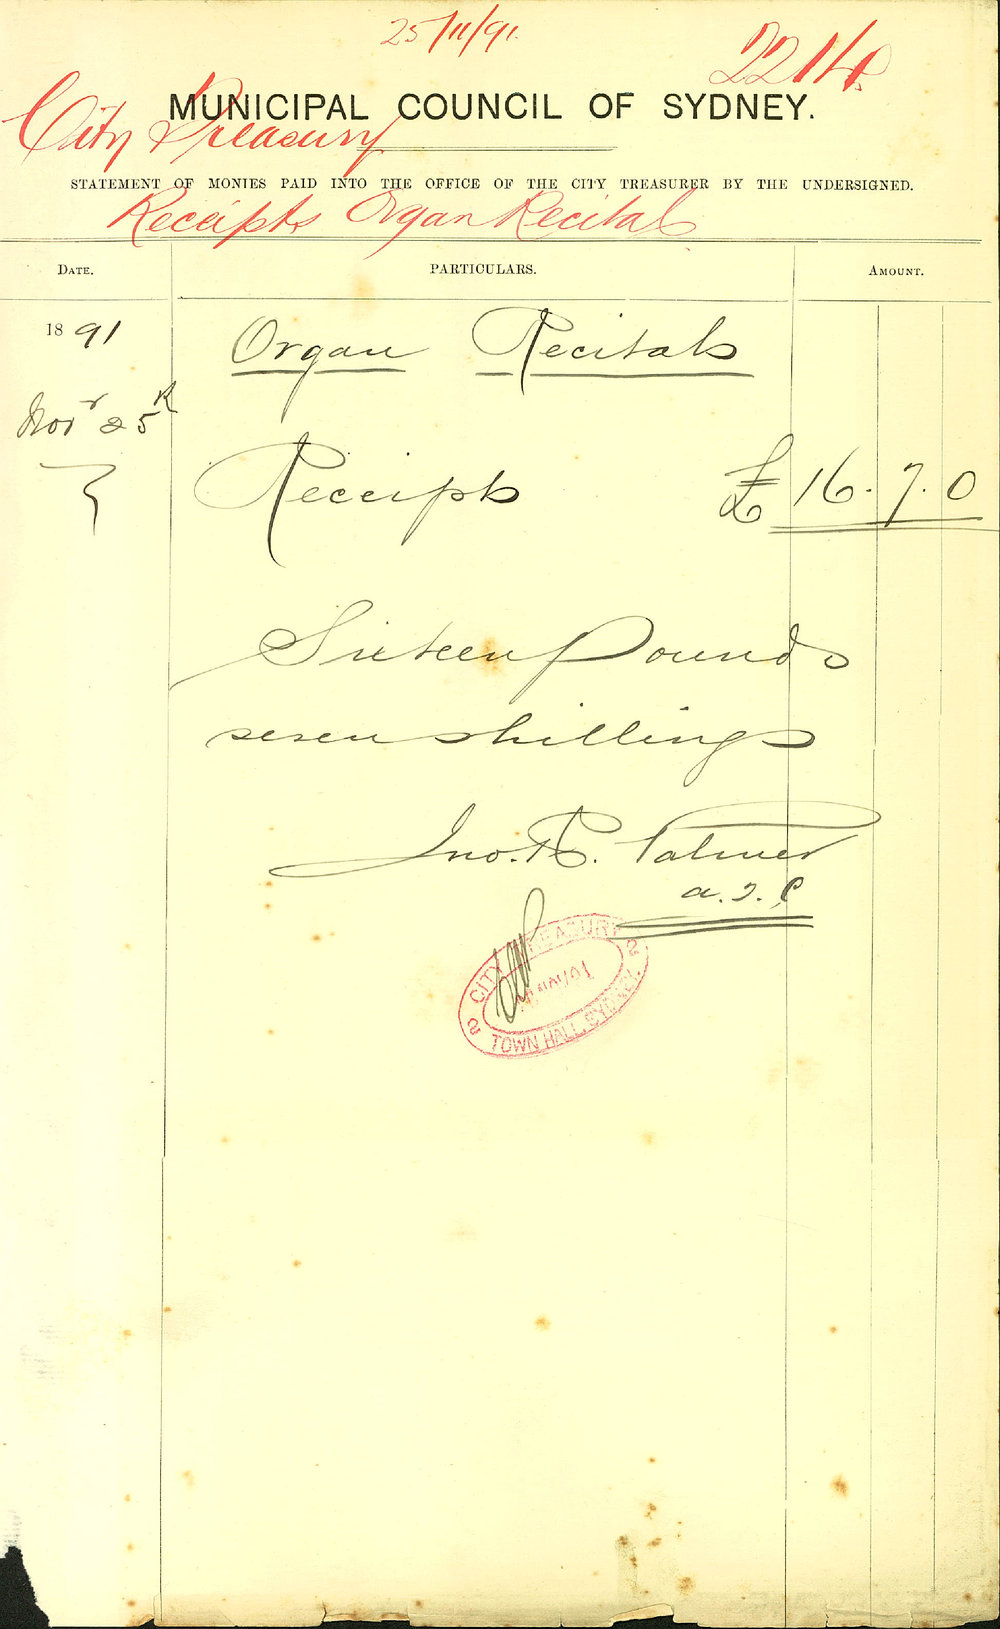 25/11/91.
2214
MUNICIPAL COUNCIL OF SYDNEY.
City Treasury
STATEMENT OF MONIES PAID INTO THE OFFICE OF THE CITY TREASURER BY THE UNDERSIGNED.
Receipts Organ Recitals
DATE. PARTICULARS. AMOUNT.
1891 Organ Recitals
Novr 25th
Receipts £ 16. 7. 0
Sixteen Pounds
seven shillings
Jno. R. Palmer
CITY TREASURY
TOWN HALL, SYDNEY.